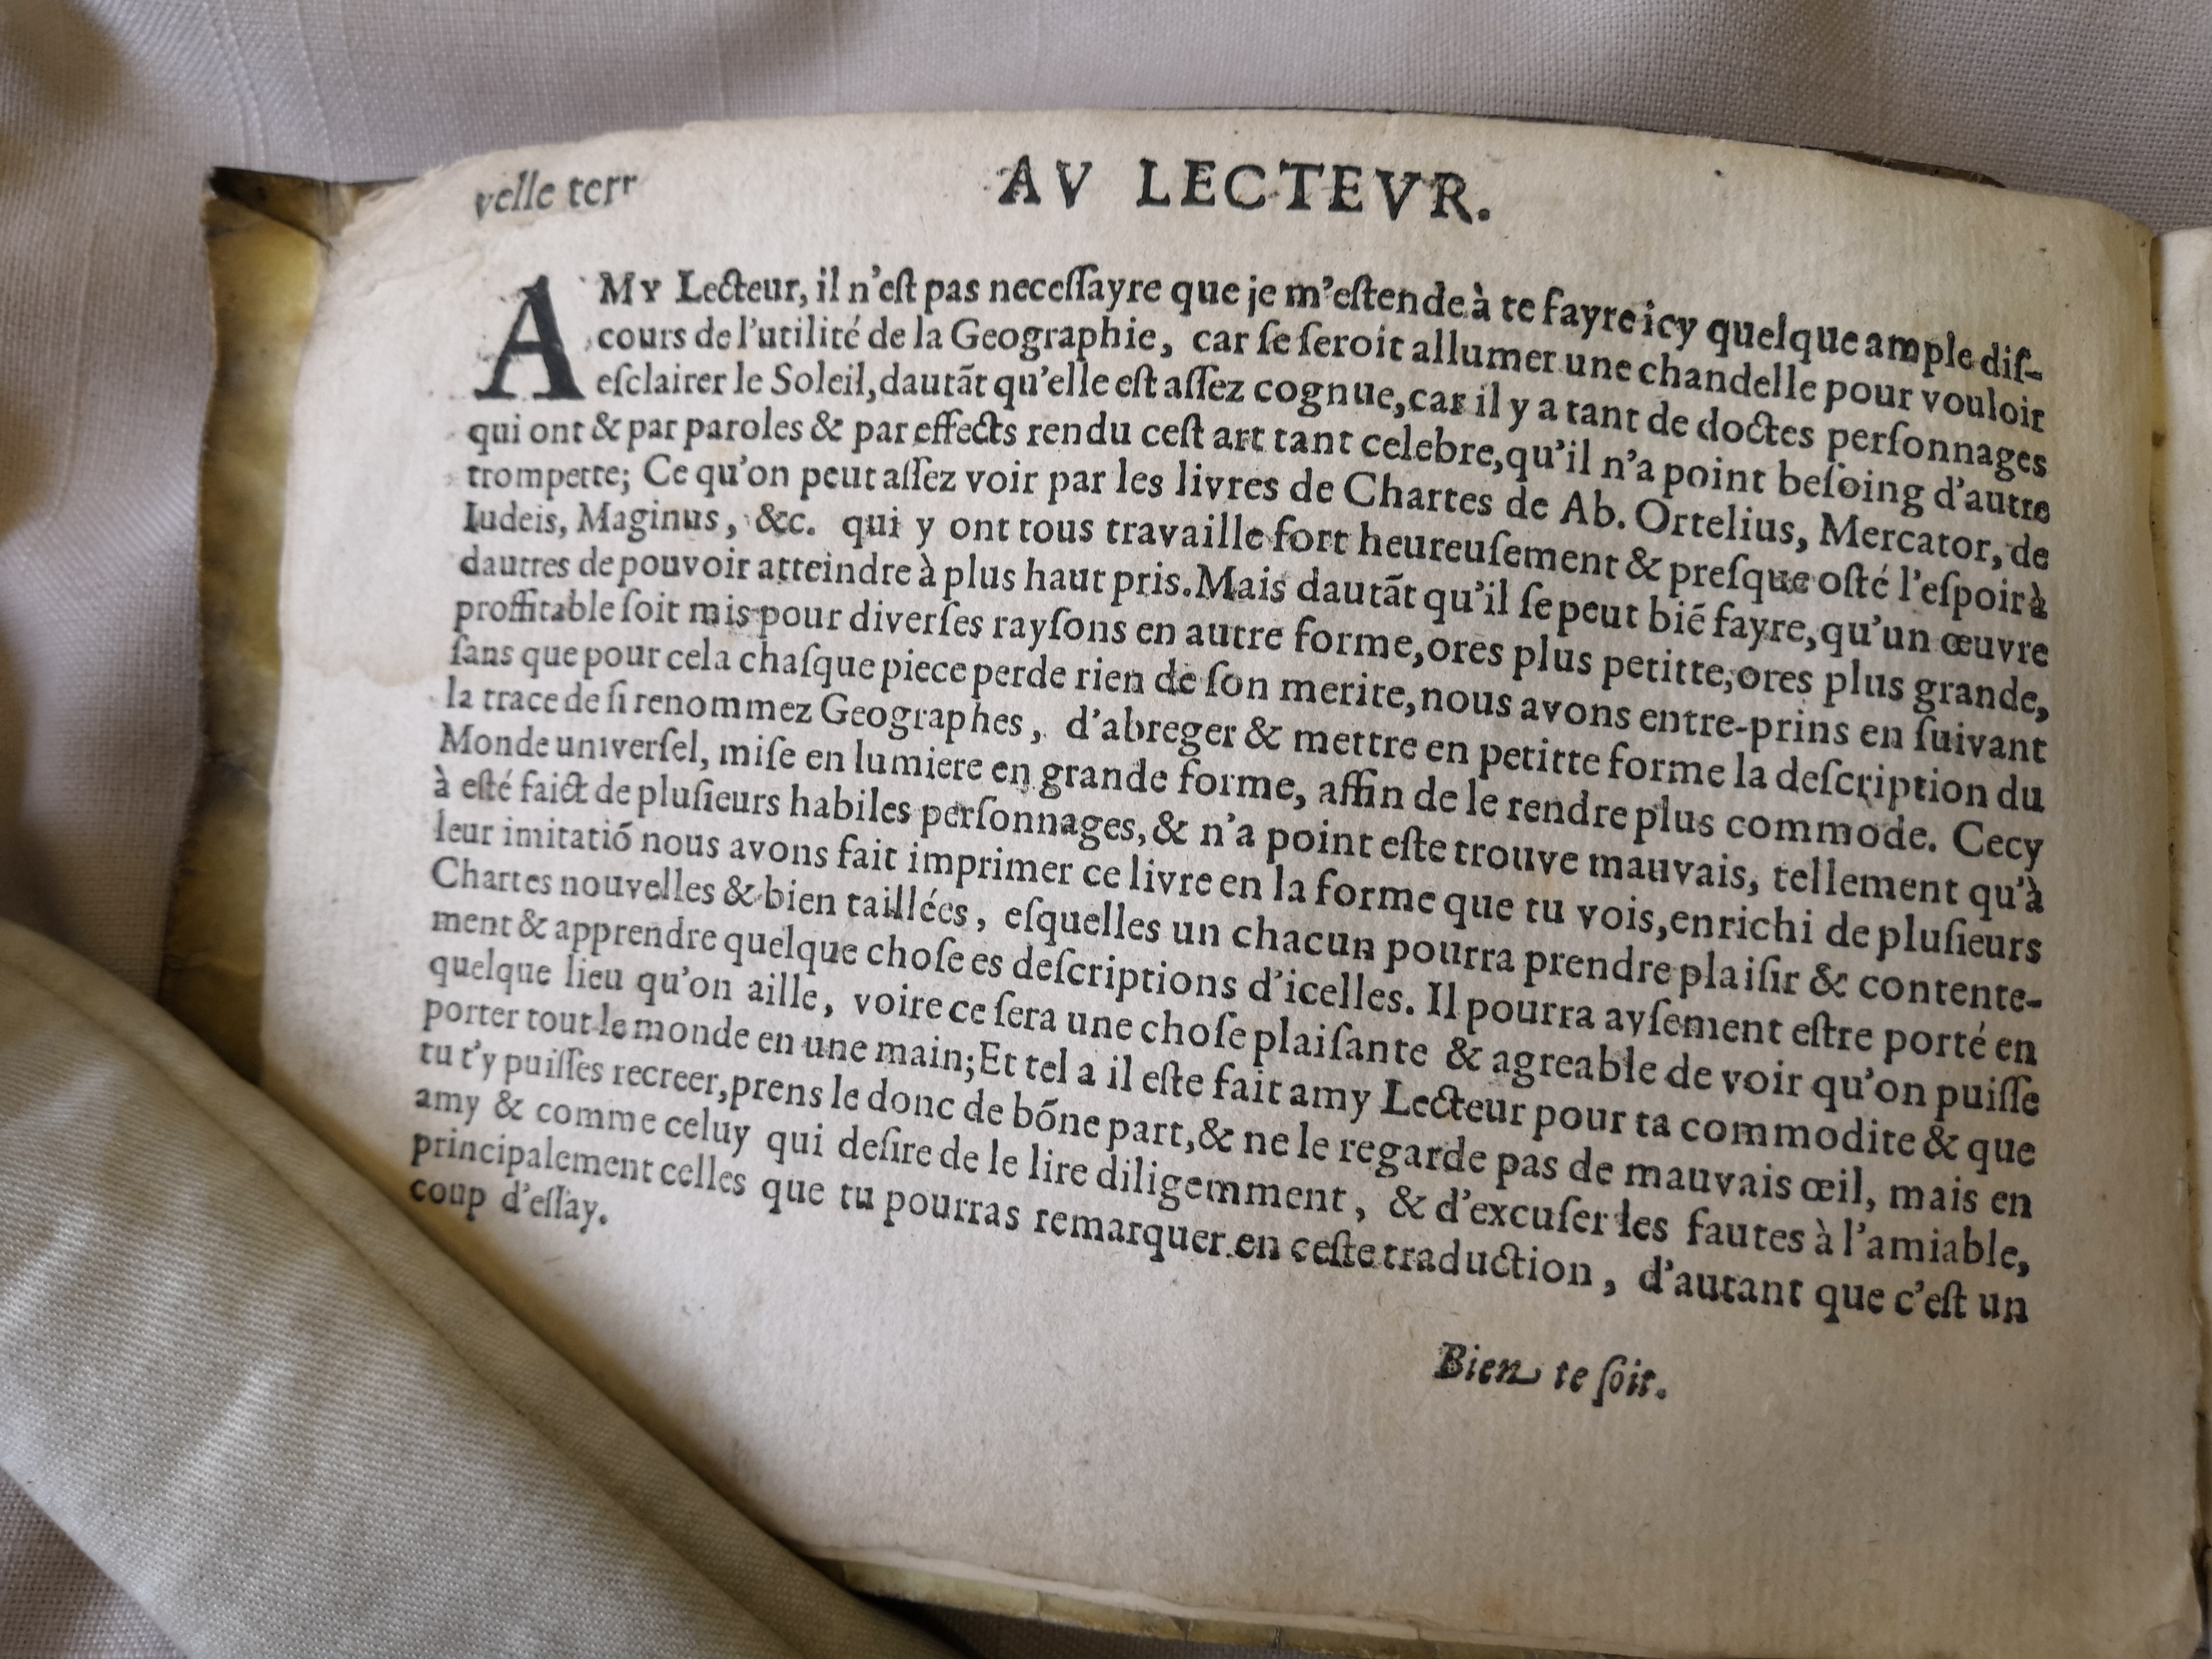 velle terr
AV LECTEVR.
AMY Lecteur, il n'eſt pas neceſſayre que je m'eſtende à te fayre icy quelque ample diſ-
cours de l'utilité de la Geographie, car ſe ſeroit allumer une chandelle pour vouloir
eſclairer le Soleil, dautãt qu'elle eſt aſſez cognue, car il y a tant de doctes perſonnages
qui ont & par paroles & par effects rendu ceſt art tant celebre, qu'il n'a point beſoing d'autre
trompette; Ce qu'on peut aſſez voir par les livres de Chartes de Ab. Ortelius, Mercator, de
Iudeis, Maginus, &c. qui y ont tous travaille fort heureuſement & preſque oſté l'eſpoir à
dautres de pouvoir atteindre à plus haut pris. Mais dautãt qu'il ſe peut biẽ fayre, qu'un œuvre
proffitable ſoit mis pour diverſes rayſons en autre forme, ores plus petitte, ores plus grande,
ſans que pour cela chaſque piece perde rien de ſon merite, nous avons entre-prins en ſuivant
la trace de ſi renommez Geographes, d'abreger & mettre en petitte forme la deſcription du
Monde univerſel, miſe en lumiere en grande forme, affin de le rendre plus commode. Cecy
à eſté faict de pluſieurs habiles perſonnages, & n'a point eſte trouve mauvais, tellement qu'à
leur imitatiõ nous avons fait imprimer ce livre en la forme que tu vois, enrichi de pluſieurs
Chartes nouvelles & bien taillées, eſquelles un chacun pourra prendre plaiſir & contente-
ment & apprendre quelque choſe es deſcriptions d'icelles. Il pourra ayſement eſtre porté en
quelque lieu qu'on aille, voire ce ſera une choſe plaiſante & agreable de voir qu'on puiſſe
porter tout le monde en une main; Et tel a il eſte fait amy Lecteur pour ta commodite & que
tu t'y puiſſes recreer, prens le donc de bõne part, & ne le regarde pas de mauvais œil, mais en
amy & comme celuy qui deſire de le lire diligemment, & d'excuſer les fautes à l'amiable,
principalement celles que tu pourras remarquer en ceſte traduction, d'autant que c'eſt un
coup d'eſſay.
Bien te ſoit.